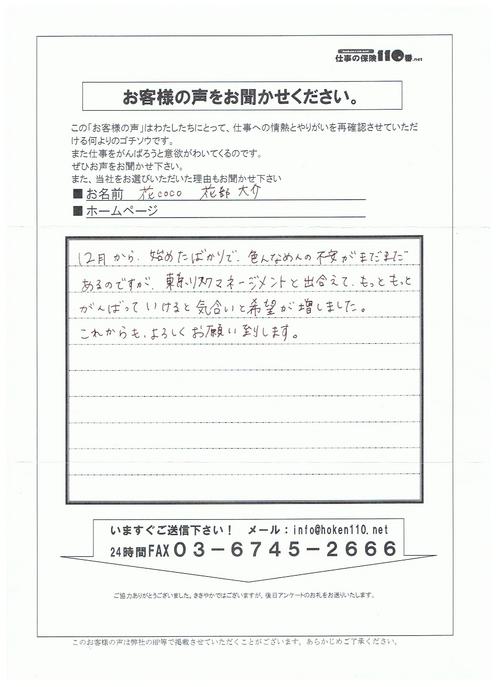 仕事の保険110番.net
お客様の声をお聞かせください。
この「お客様の声」はわたしたちにとって、仕事への情熱とやりがいを再確認させていただ
ける何よりのゴチソウです。
また仕事をがんばろうと意欲がわいてくるのです。
ぜひお声をお聞かせ下さい。
また、当社をお選びいただいた理由もお聞かせ下さい
■お名前 花coco 花部 大介
■ホームページ
12月から、始めたばかりで、色んなめんの不安がまだまだ
あるのですが、東京リスクマネージメントと出合えて、もっともっと
がんばって いけると気合いと希望が増しました。
これからも、よろしくお願い致します。
いますぐご送信下さい！ メール：info@hoken110.net
24時間FAX03-6745-2666
ご協力ありがとうございました。ささやかではございますが、後日アンケートのお礼をお送りいたします。
このお客様の声は弊社のHP等で掲載させていただくことがございます。あらかじめご了承ください。